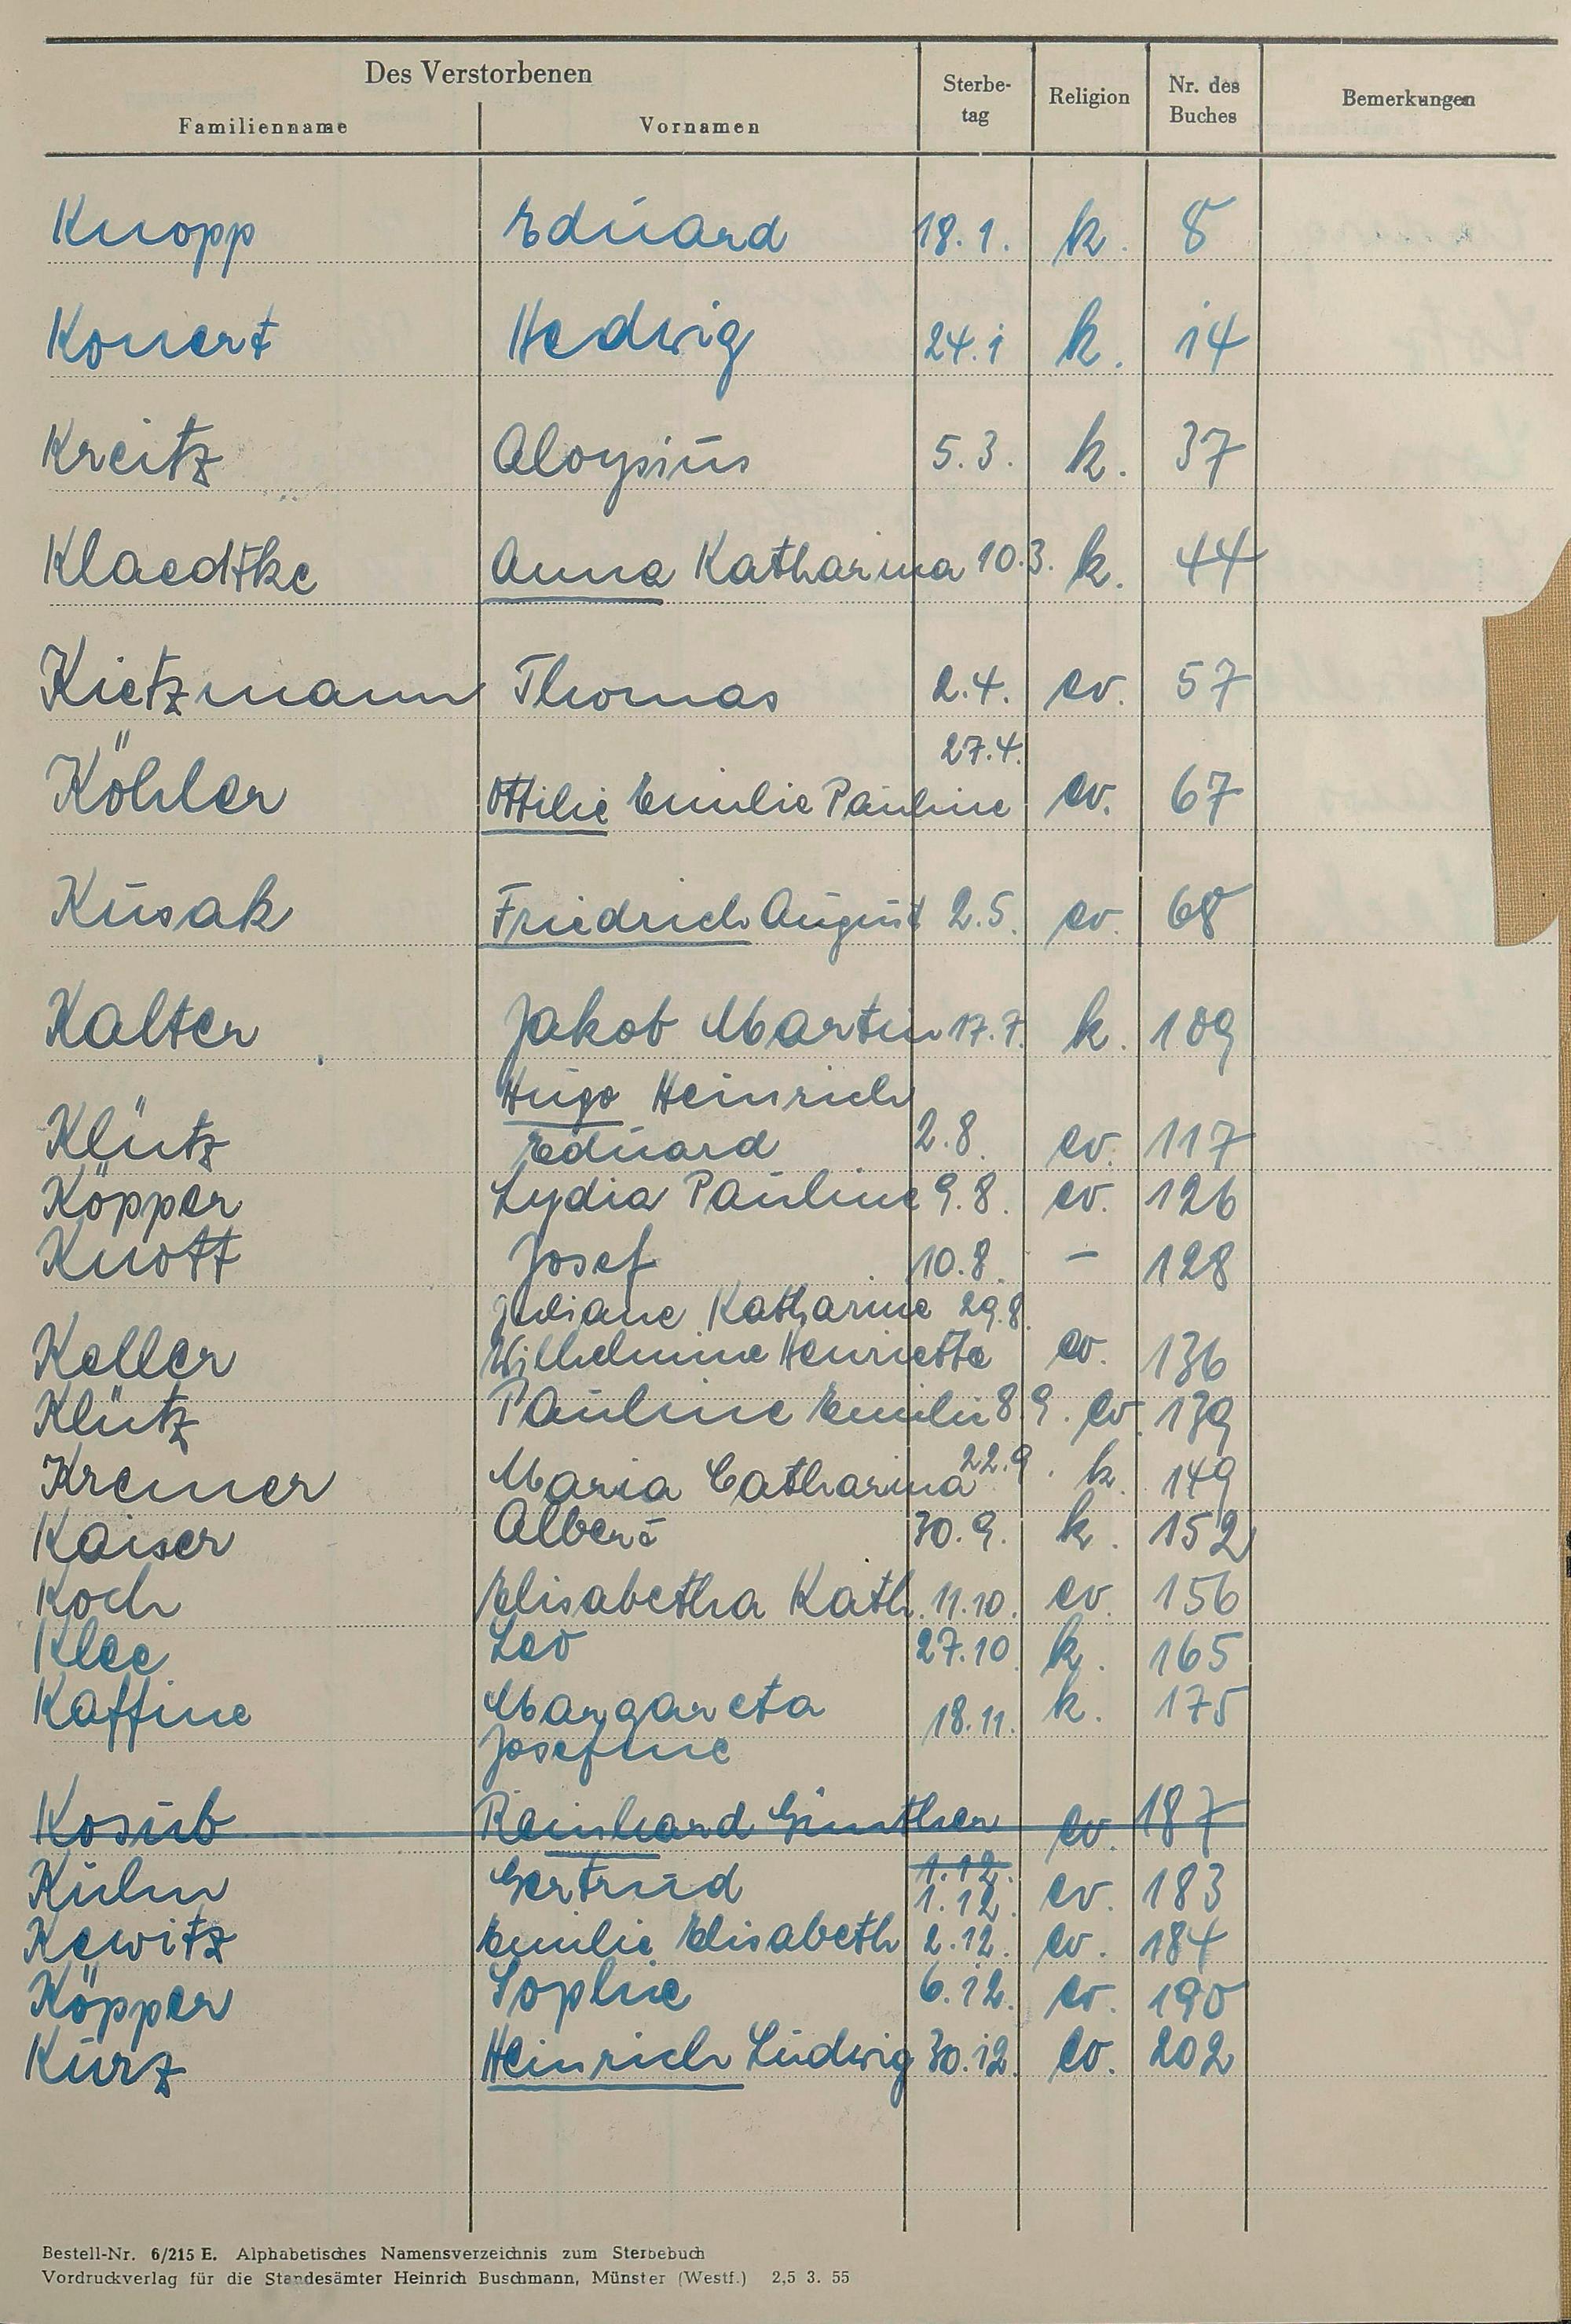 Des Verstorbenen
Familienname Vornamen Sterbe-tag Religion Nr. des Buches Bemerkungen
Knopp Eduard 18.1. k. 8
Konert Hedwig 24.1 k. 14
Kreitz Aloysius 5.3. k. 37
Klaedtke Anna Katharina 10.3. k. 44
Kietzmann Thomas 2.4. ev. 57
27.4.
Köhler Ottilie Emilie Pauline ev. 67
Kusak Friedrich August 2.5. ev. 68
Kalter Jakob Martin 17.7. k. 109
Hugo Heinrich
Klütz Eduard 2.8. ev. 117
Köpper Lydia Pauline 9.8. ev. 126
Knott Josef 10.8. – 128
Juliane Katharine 29.8.
Keller Wilhelmine Henriette ev. 136
Klütz Pauline Emilie 8.9. ev. 139
Kremer Maria Catharina 22.9. k. 149
Kaiser Albert 30.9. k. 152
Koch Elisabetha Kath. 11.10. ev. 156
Klee Leo 27.10. k. 165
Kaffine Margareta 18.11. k. 175
Josefine
Kosub Reinhard Günther ev. 187
1.12.
Kuhn Gertrud 1.12. ev. 183
Kewitz Emilie Elisabeth 2.12. ev. 184
Köpper Sophie 6.12. ev. 190
Kurz Heinrich Ludwig 30.12. ev. 202
Bestell-Nr. 6/215 E. Alphabetisches Namensverzeichnis zum Sterbebuch
Vordruckverlag für die Standesämter Heinrich Buschmann, Münster (Westf.) 2,5 3. 55